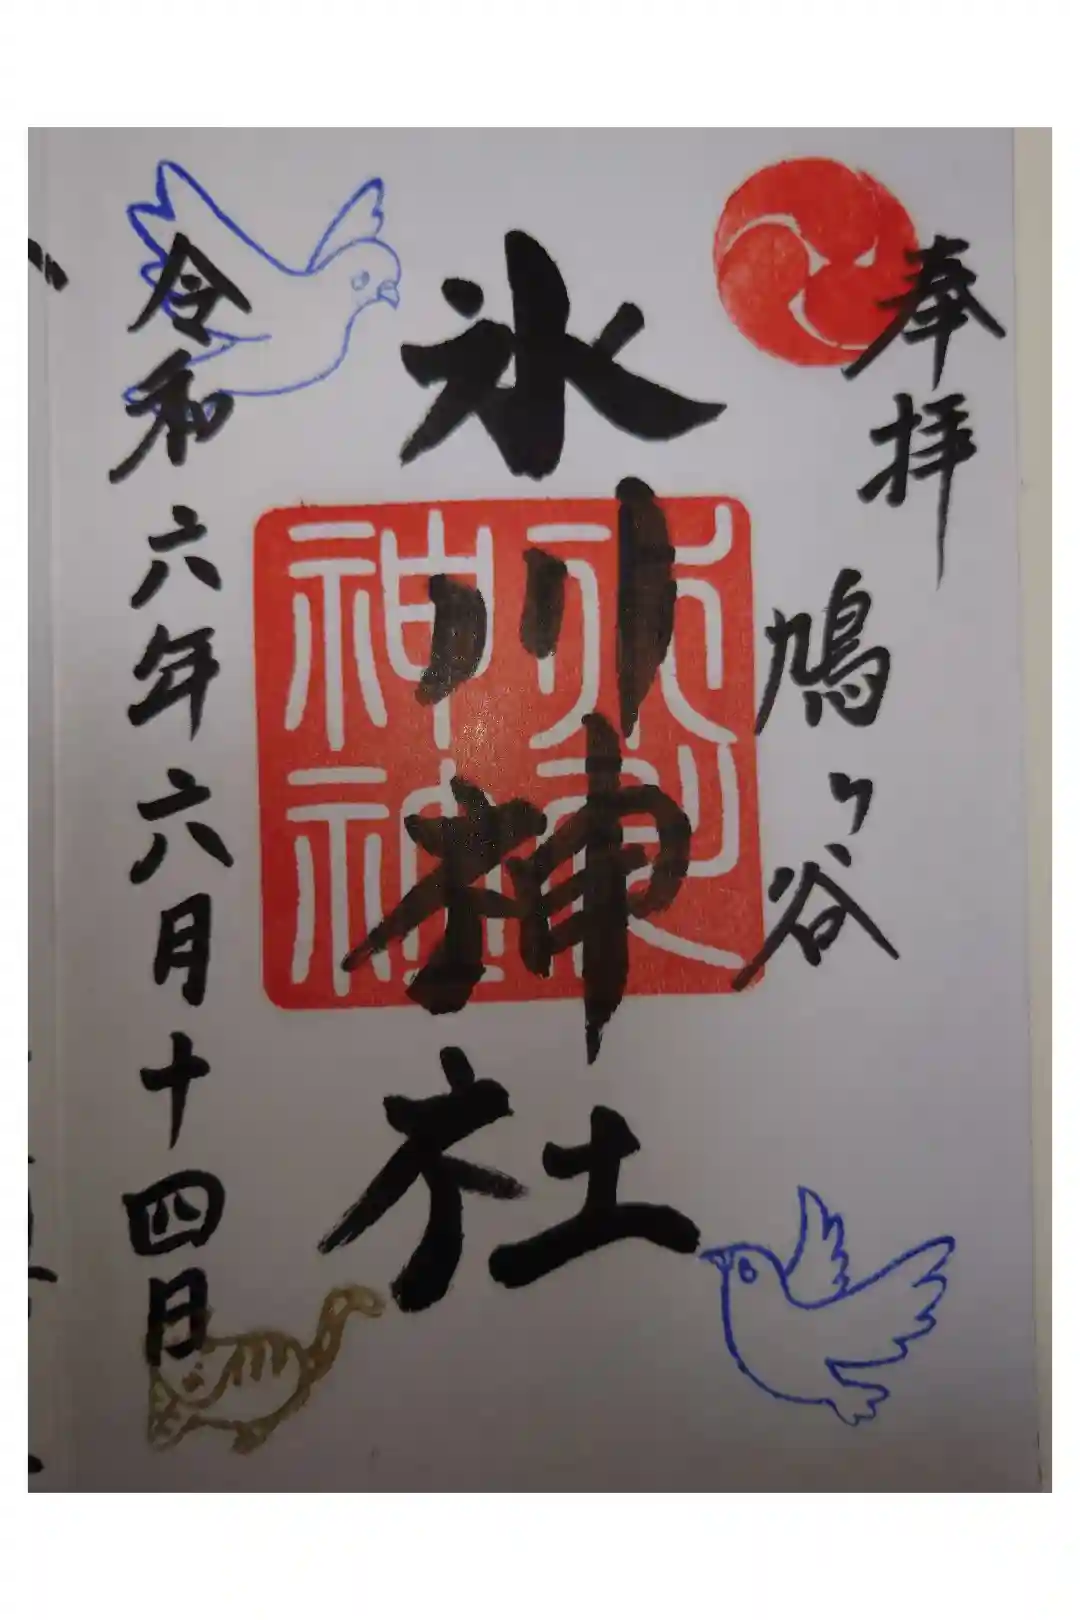 奉拝
鳩ヶ谷
氷川神社
氷川
神社
令和六年六月十四日